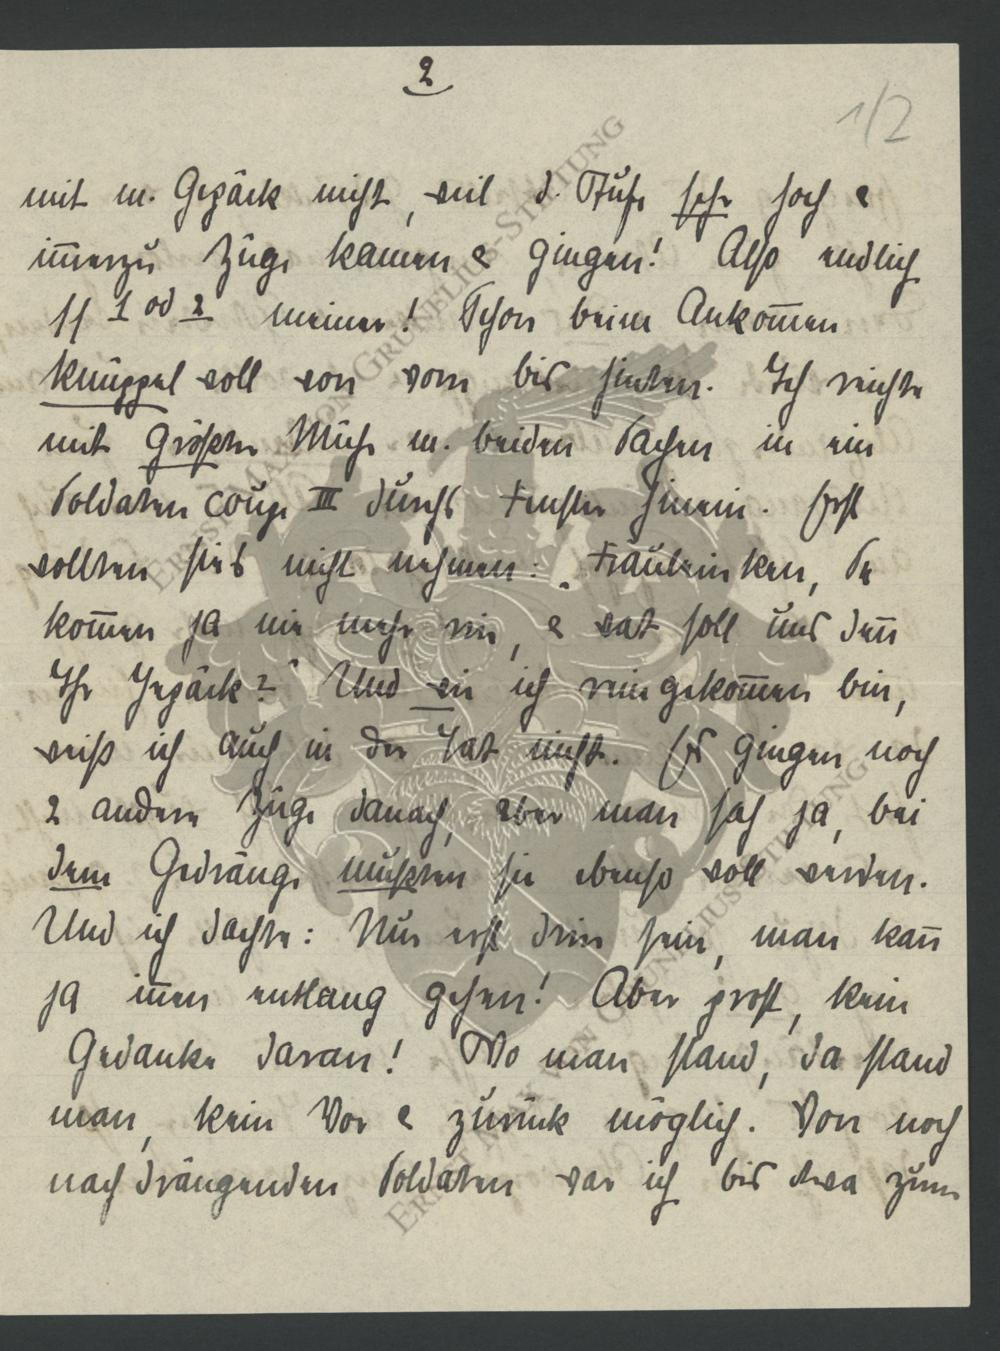 2
1/2
mit m. Gepäck nicht, weil d. Stufe sehr hoch &
im̅erzu Züge kamen & gingen! Also endlich
11 1 od 2 meiner! Schon beim Ankom̅en
knüppel voll von vorn bis hinten. Ich reichte
mit größter Mühe m. beiden Sachen in ein
Soldaten coupe III durchs Fenster hinein. Erst
wollten sies nicht nehmen: „Fräuleinken, Se
kom̅en ja nie mehr rin, & wat soll uns den̅
Ihr Jepäck?" Und wie ich reingekom̅en bin,
weiß ich auch in der Tat nicht. Es gingen noch
2 andere Züge danach, aber man sah ja, bei
dem Gedränge mußten sie ebenso voll werden.
Und ich dachte: Nur erst drin sein, man kan̅
ja in̅en entlang gehen! Aber prost, kein
Gedanke daran! Wo man stand, da stand
man, kein Vor & zurück möglich. Von noch
nach drängenden Soldaten war ich bis etwa zum
ERNST MAX VON GRUNELIUS-STIFTUNG
ERNST MAX VON GRUNELIUS-STIFTUNG